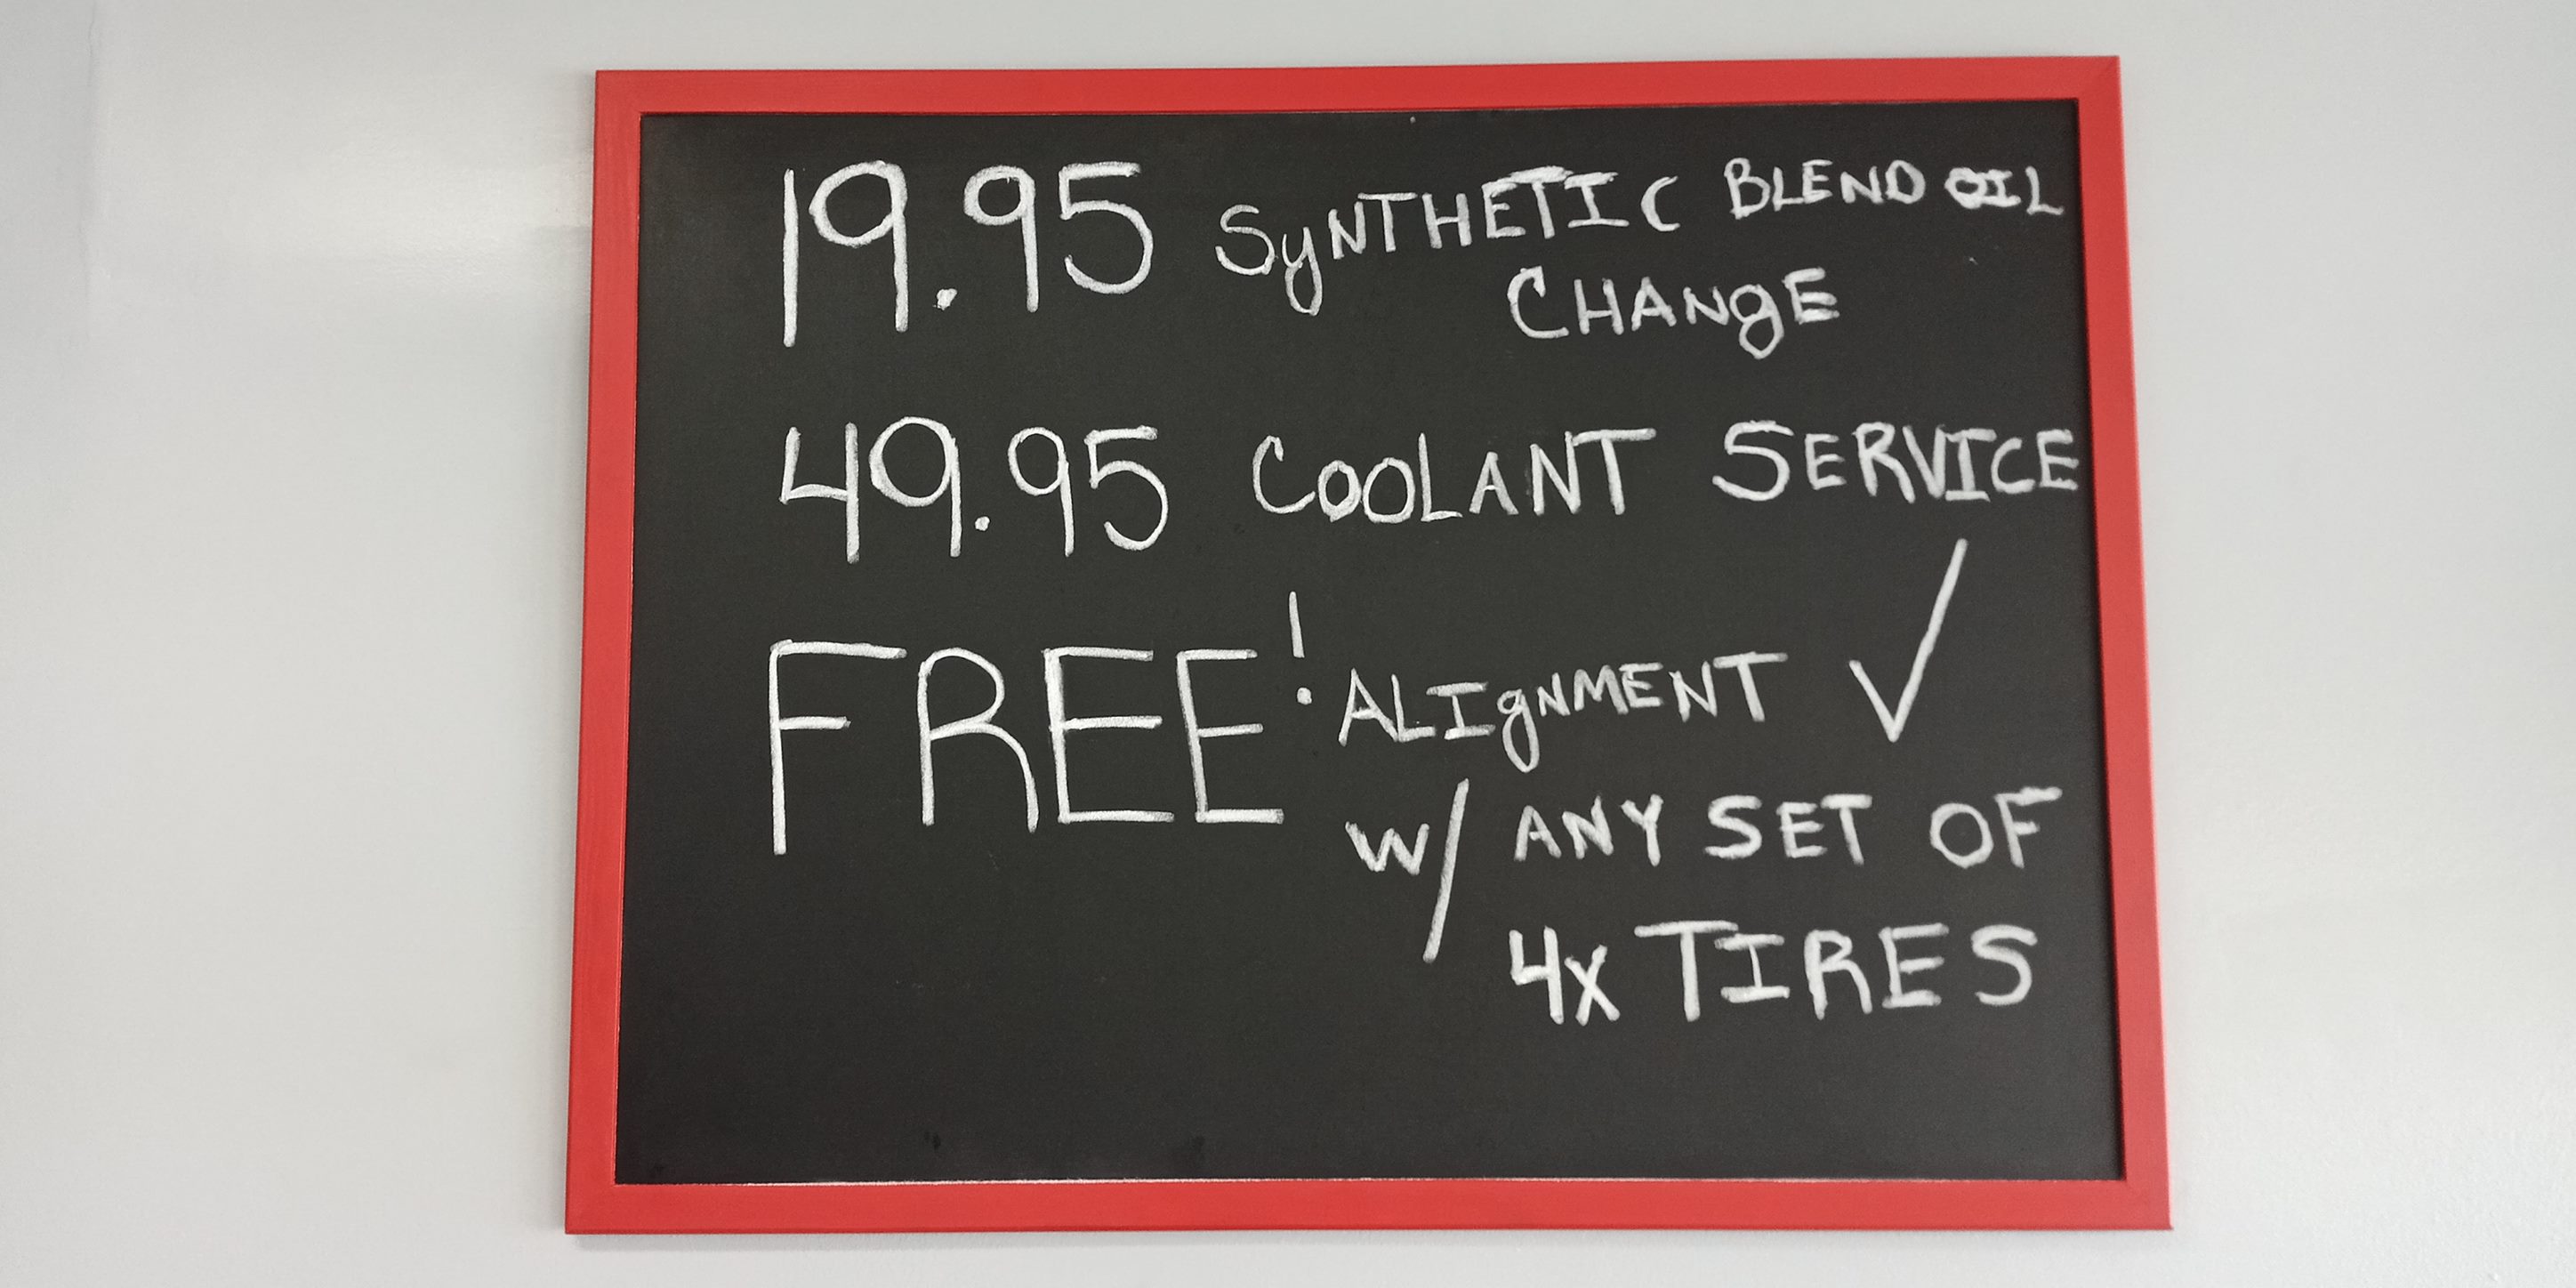 19.95 SyNTHETIC BLEND OIL
CHANgE
49.95 COOLANT SERVICE
FREE! ALIgNMENT ✓
w/ ANY SET OF
4x TIRES